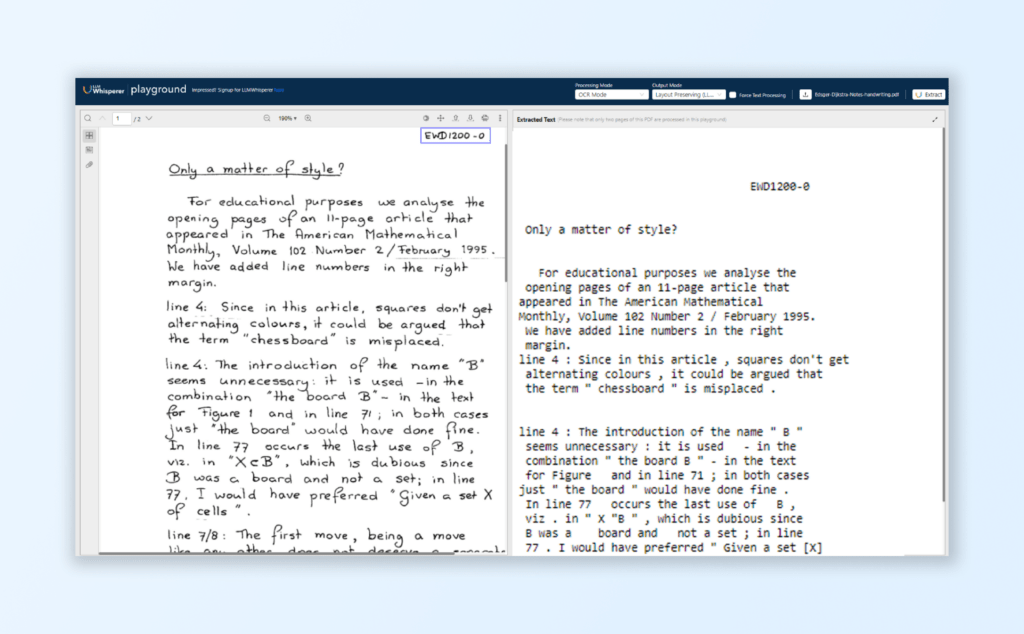 LLM
Whisperer playground Impressed? Signup for LLMWhisperer
Processing Mode
OCR Mode
Output Mode
Layout Preserving (LL...
Force Text Processing
Edsger-Dijkstra-Notes-handwriting.pdf
Extract
1 / 2
190%
EWD1200-0
Only a matter of style?
For educational purposes we analyse the
opening pages of an 11-page article that
appeared in The American Mathematical
Monthly, Volume 102 Number 2/February 1995.
We have added line numbers in the right
margin.
line 4: Since in this article, squares don't get
alternating colours, it could be argued that
the term "chessboard" is misplaced.
line 4: The introduction of the name "B"
seems unnecessary: it is used -in the
combination "the board B"- in the text
for Figure 1 and in line 71; in both cases
just "the board" would have done fine.
In line 77 occurs the last use of B,
viz. in "X⊂B", which is dubious since
B was a board and not a set; in line
77, I would have preferred "Given a set X
of cells".
line 7/8: The first move, being a move
like any other does not deserve a separate
Extracted Text (Please note that only two pages of this PDF are processed in this playground)
EWD1200-0
Only a matter of style?
For educational purposes we analyse the
opening pages of an 11-page article that
appeared in The American Mathematical
Monthly, Volume 102 Number 2 / February 1995.
We have added line numbers in the right
margin.
line 4 : Since in this article , squares don't get
alternating colours , it could be argued that
the term " chessboard " is misplaced .
line 4 : The introduction of the name " B "
seems unnecessary : it is used - in the
combination " the board B " - in the text
for Figure and in line 71 ; in both cases
just " the board " would have done fine .
In line 77 occurs the last use of B ,
viz . in " X "B " , which is dubious since
B was a board and not a set ; in line
77 . I would have preferred " Given a set [X]